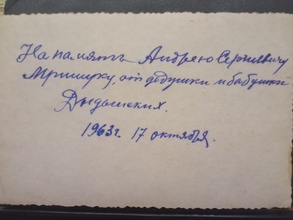 На память Андрею Сергеевичу
от дедушки и бабушки
1963г. 17 октября.